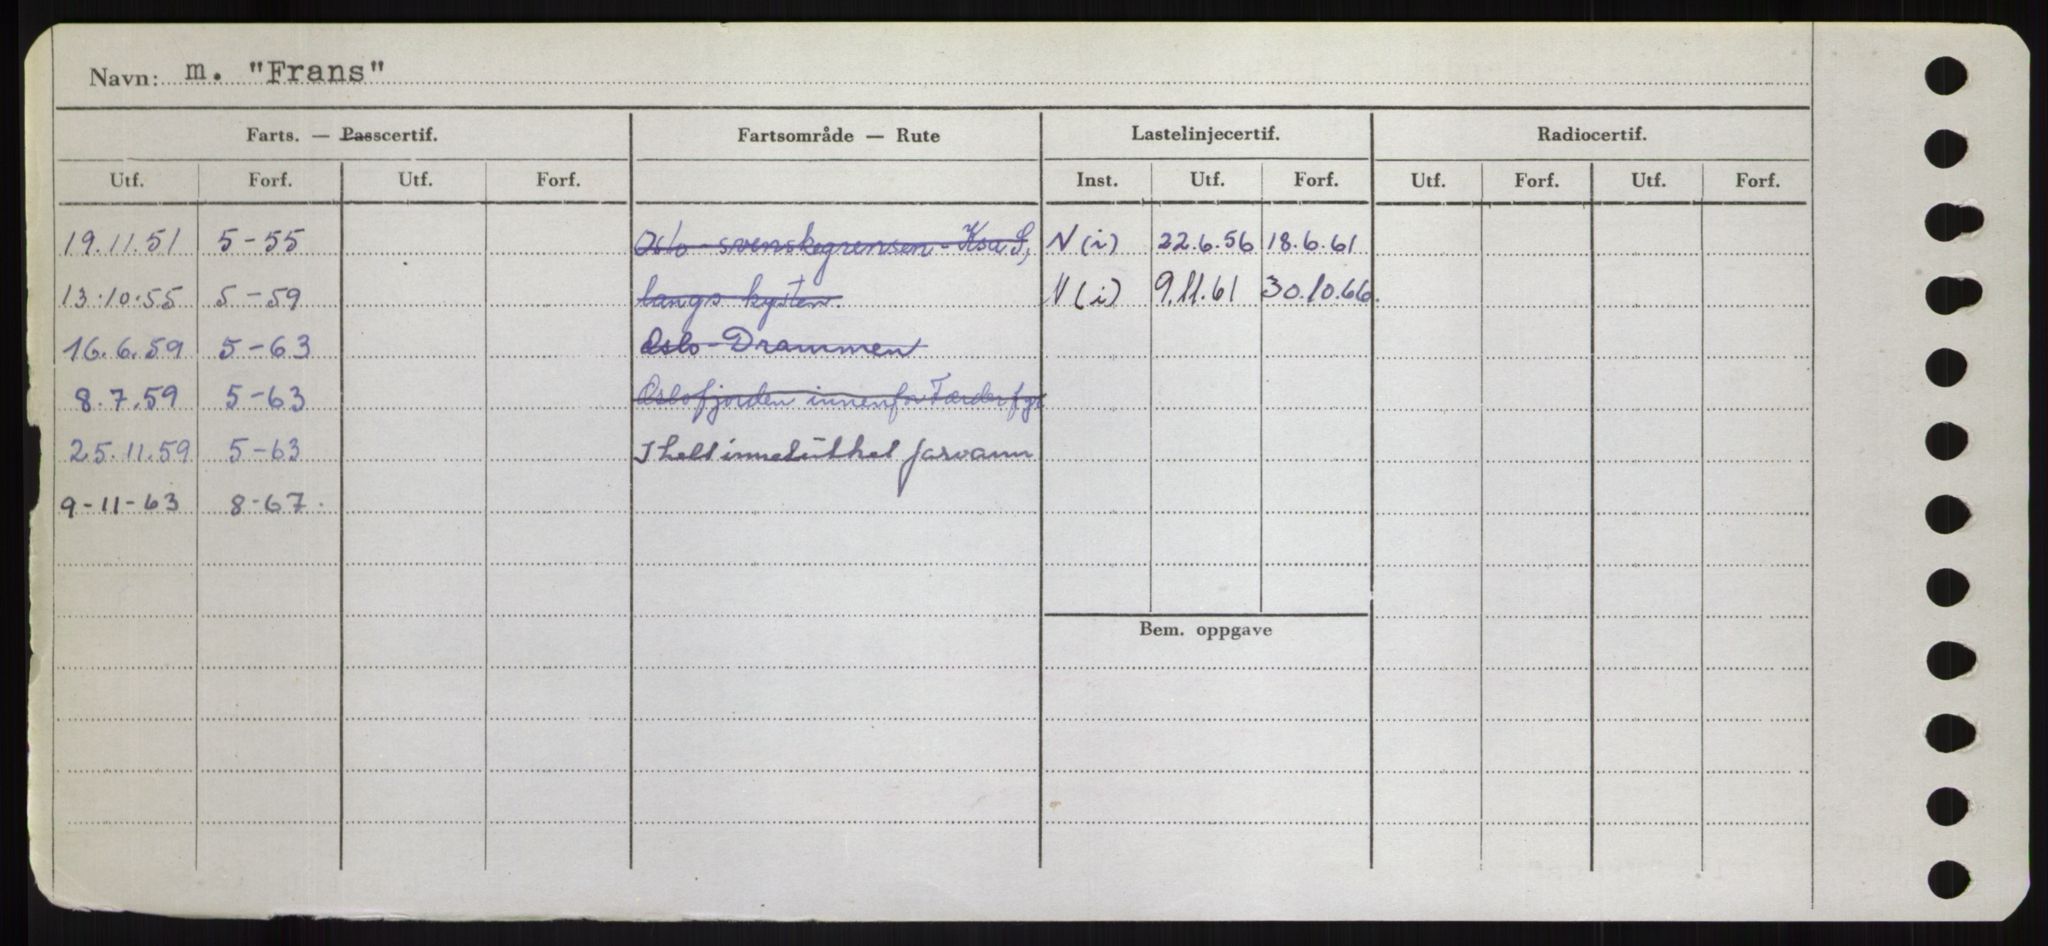 Navn: m. "Frans"
Farts. — Passcertif. Fartsområde — Rute Lastelinjecertif. Radiocertif.
Utf. Forf. Utf. Forf. Inst. Utf. Forf. Utf. Forf. Utf. Forf.
19.11.51 5-55 Oslo - svenskegrensen - N (i) 22.6.56 18.6.61
13.10.55 5-59 langs kysten. N (i) 9.11.61 30.10.66.
16.6.59 5-63 Oslo - Drammen
8.7.59 5-63 Oslofjorden innenfor Færder fyr
25.11.59 5-63 I helt innelukket farvann
9-11-63 8-67.
Bem. oppgave